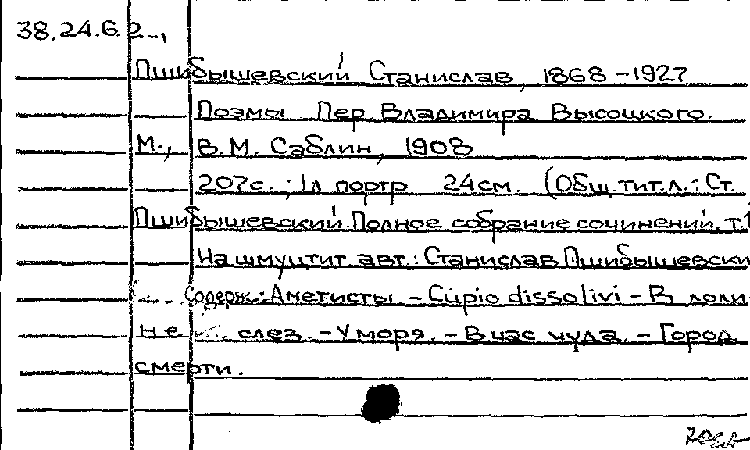 38.24.6.2.,
Пшибышевский Станислав, 1868-1927
Поэмы Пер. Владимира Высоцкого.
М., В.М. Саблин, 1908
207с.; 1л портр 24см. (Общ.тит.л.: Ст.
Пшибышевский Полное собрание сочинений, т.1
На шмуцтит авт.: Станислав Пшибышевски
Содерж.: Аметисты. - Cupio dissolvi - В доли
не слез. - У моря. - В час чуда. - Город
смерти.